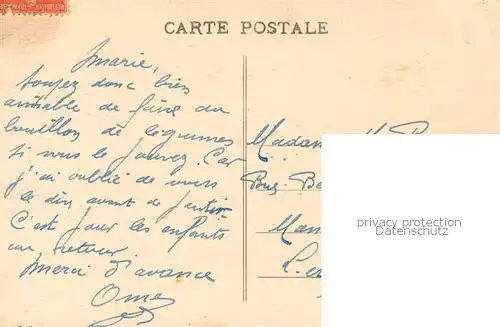 CARTE POSTALE
Marie,
soyez donc bien
aimable de faire du
bouillon de légumes
si vous le pouvez. Car
j'ai oublié de vous
le dire avant de partir
C'est pour les enfants
au retour
Merci d'avance
Madam
Man
privacy protection
Datenschutz